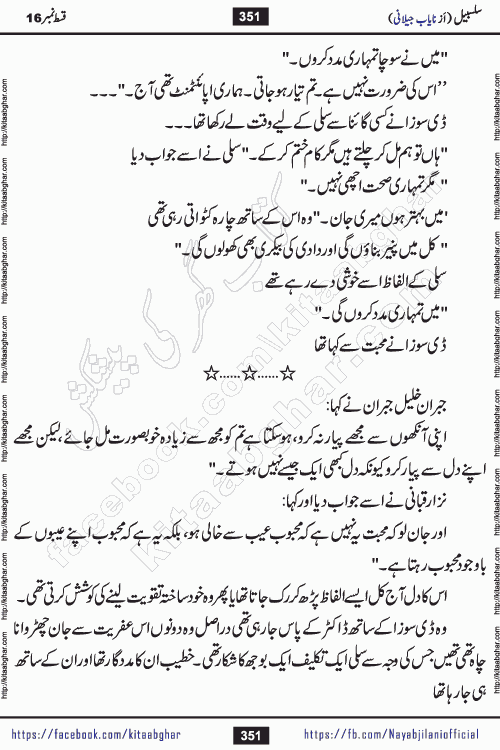 سلسبیل (از نایاب جیلانی) 351 قسط نمبر 16
"میں نے سوچا تمہاری مدد کروں۔"
"اس کی ضرورت نہیں ہے۔ تم تیار ہو جاتی۔ ہماری اپائنٹمنٹ تھی آج۔"۔۔۔
ڈی سوزا نے کسی گائنا سے سلی کے لیے وقت لے رکھا تھا۔۔۔
"ہاں تو ہم مل کر چلتے ہیں مگر کام ختم کر کے۔" سلی نے اسے جواب دیا
"مگر تمہاری صحت اچھی نہیں۔"
'میں بہتر ہوں میری جان۔" وہ اس کے ساتھ چارہ کٹواتی رہی تھی
"کل میں پنیر بناؤں گی اور دادی کی بیکری بھی کھولوں گی۔"
سلی کے الفاظ اسے خوشی دے رہے تھے
"میں تمہاری مدد کروں گی۔"
ڈی سوزا نے محبت سے کہا تھا
☆......☆......☆
جبران خلیل جبران نے کہا:
اپنی آنکھوں سے مجھے پیار نہ کرو، ہو سکتا ہے تم کو مجھ سے زیادہ خوبصورت مل جائے، لیکن مجھے
اپنے دل سے پیار کرو کیونکہ دل کبھی ایک جیسے نہیں ہوتے۔"
نزار قبانی نے اسے جواب دیا اور کہا:
اور جان لو کہ محبت یہ نہیں ہے کہ محبوب عیب سے خالی ہو، بلکہ یہ ہے کہ محبوب اپنے عیبوں کے
باوجود محبوب رہتا ہے۔"
اس کا دل آج کل ایسے الفاظ پڑھ کر رک جاتا تھا یا پھر وہ خود ساختہ تقویت لینے کی کوشش کرتی تھی۔
وہ ڈی سوزا کے ساتھ ڈاکٹر کے پاس جا رہی تھی دراصل وہ دونوں اس عفریت سے جان چھڑوانا
چاہ تھی تھیں جس کی وجہ سے سلی ایک تکلیف ایک بوجھ کا شکار تھی۔ خطیب ان کا مددگار تھا اور ان کے ساتھ
ہی جا رہا تھا
کتاب گھر کی پیشکش
facebook.com/kitaabghar
kitaabghar.com
http://kitaabghar.com
https://facebook.com/kitaabghar 351 https://fb.com/Nayabjilaniofficial